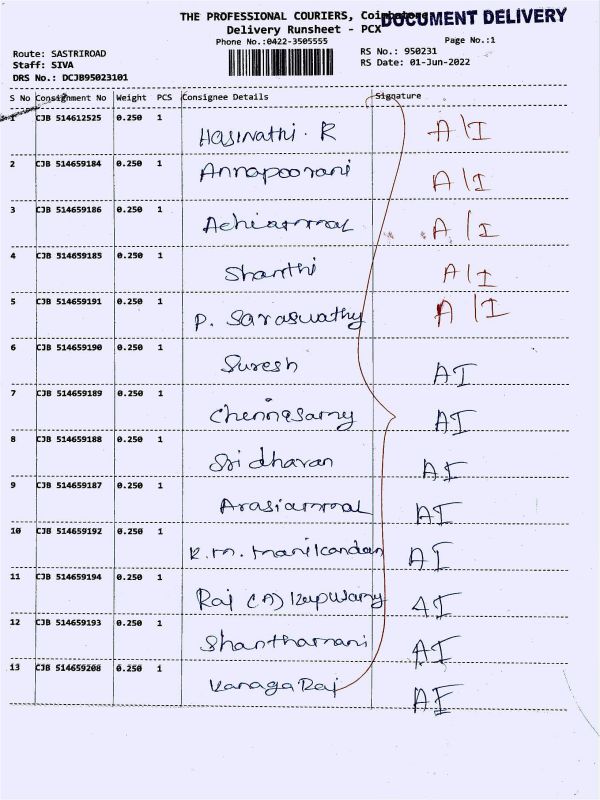 THE PROFESSIONAL COURIERS, Coimbatore
DOCUMENT DELIVERY
Delivery Runsheet - PCX
Phone No.:0422-3505555
Page No.:1
Route: SASTRIROAD
RS No.: 950231
Staff: SIVA
RS Date: 01-Jun-2022
DRS No.: DCJB95023101
S No Consignment No Weight PCS Consignee Details Signature
1 CJB 514612525 0.250 1 Hasinathi. R A/I
2 CJB 514659184 0.250 1 Annapoorani A/I
3 CJB 514659186 0.250 1 Achiammal A/I
4 CJB 514659185 0.250 1 Shanthi A/I
5 CJB 514659191 0.250 1 P. Saraswathy A/I
6 CJB 514659190 0.250 1 Suresh AI
7 CJB 514659189 0.250 1 Chennasamy AI
8 CJB 514659188 0.250 1 Sridharan AI
9 CJB 514659187 0.250 1 Arasiammal AI
10 CJB 514659192 0.250 1 K.M. Manikandan AI
11 CJB 514659194 0.250 1 Raj (A) AI
12 CJB 514659193 0.250 1 Shanthamani AI
13 CJB 514659208 0.250 1 KanagaRaj AI